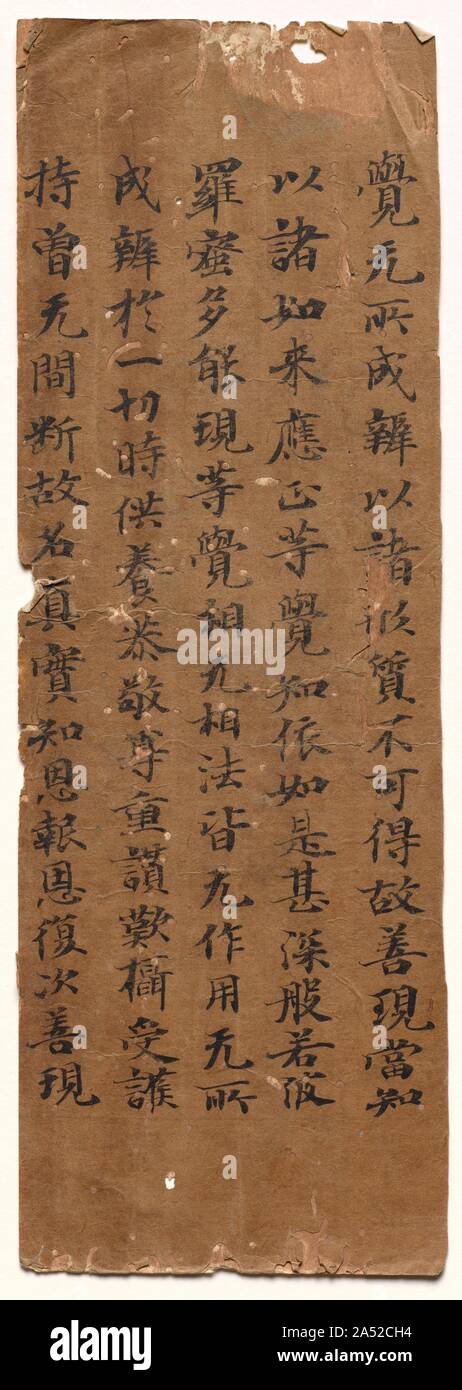 覺无所成辦以諸形質不可得故善現當知
以諸如来應正等覺知依如是甚深般若波
羅蜜多能現等覺相无相法皆无作用无所
成辦於一切時供養恭敬尊重讚歎攝受護
持曾无間断故名真實知恩報恩復次善現
alamy
alamy
Image ID: 2A52CH4
www.alamy.com